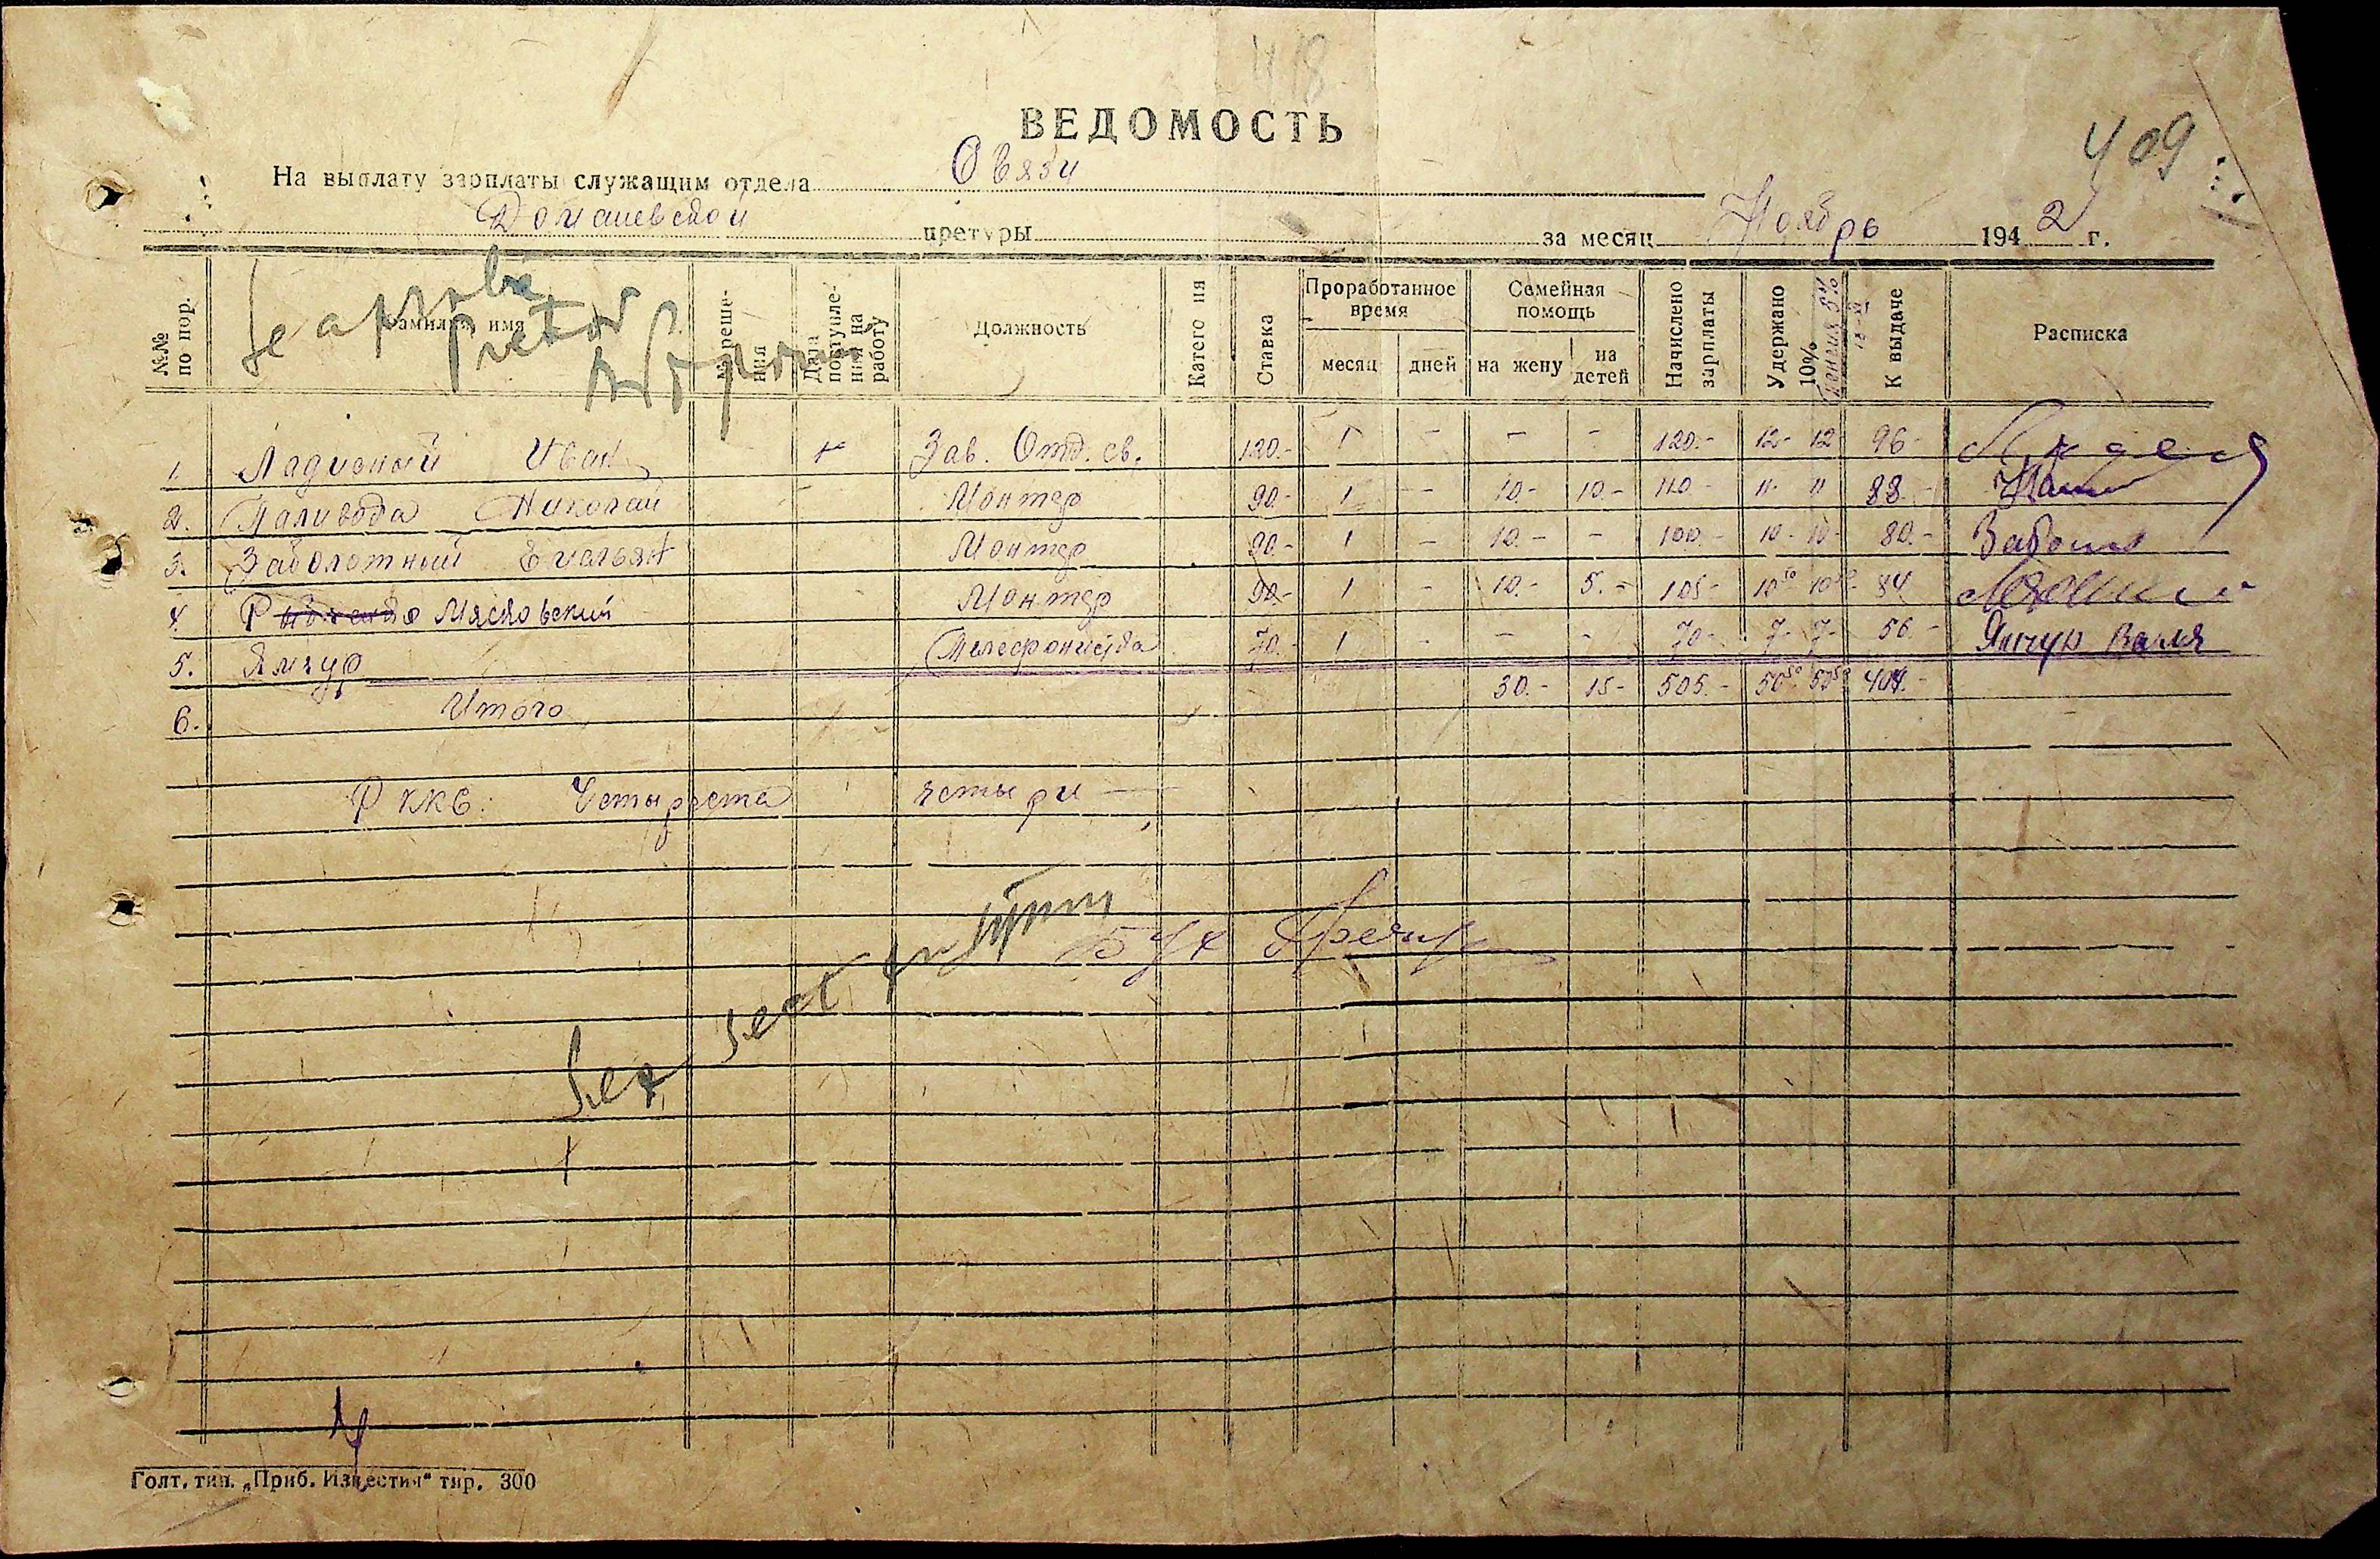 418
ВЕДОМОСТЬ
409
На выплату зарплаты служащим отдела Связи
Доманевской претуры за месяц Ноябрь 1942 г.
Se aprobă
Pretor
№№ по пор. Фамилия имя № решения Дата поступления на работу Должность Категория Ставка Проработанное время месяц дней Семейная помощь на жену на детей Начислено зарплаты Удержано 10% К выдаче Расписка
1. Ладисный Иван Зав. Отд. св. 120.- 1 - - - 120.- 12- 12 96-
2. Паливода Николай Монтер 90.- 1 - 10.- 10.- 110- 11- 11 88.-
3. Заболотный Емельян Монтер 90.- 1 - 10.- - 100.- 10- 10- 80.-
4. Мясковский Монтер 90.- 1 - 10.- 5.- 105- 10 50 10 50 84
5. Ямчур Телефонистка 70.- 1 - - - 70- 7- 7- 56.- Ямчур Валя
6. Итого 30.- 15- 505.- 50 50 50 50 404.-
РККС: Четыреста четыри
Бух
Голт. тип. „Приб. Известия" тир. 300